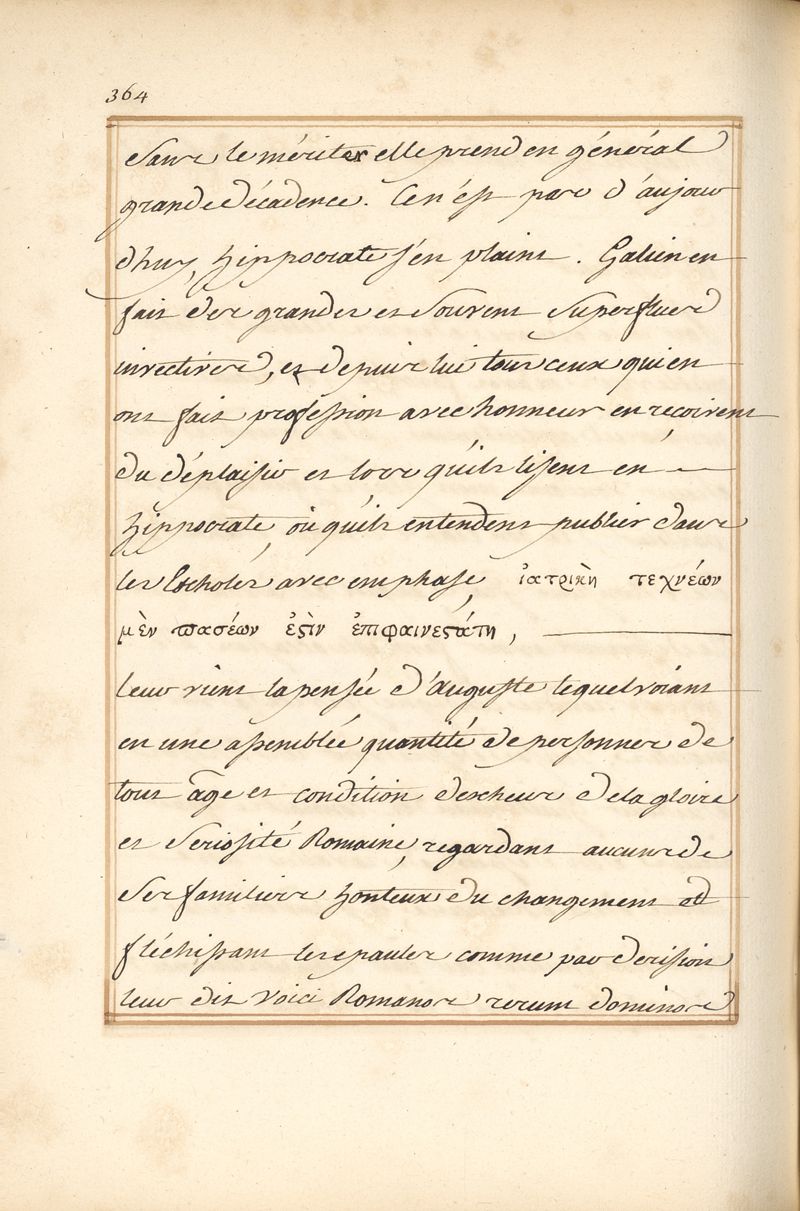 364
Sans le mérite et elle prend en général
grande décadence. Ce n'ést pas d'aujour
dhuy, hippocrate s'en plaint. Galien en
fait des grandes et Souvent Superflues
invectives, et depuis lui tous ceux qui en
ont fait profession avec honneur en reçoivent
du déplaisir et lors qu'ils lisent en
hippocrate, où qu'ils entendent publier dans
les Escholes avec emphase, ἰατρικὴ τεχνέων
μὲν πασέων ἐϛὶν ἐπιφαινεϛάτη,
leur vient la pensée d'auguste lequel voiant
en une assemblée quantité de personnes de
tous âge et condition descheus de la gloire
et Seriosité Romaine, regardant aucuns de
Ses familiers honteux du changement et
fléchissant les epaules comme par derision
leur dit Voici Romanos rerum dominos